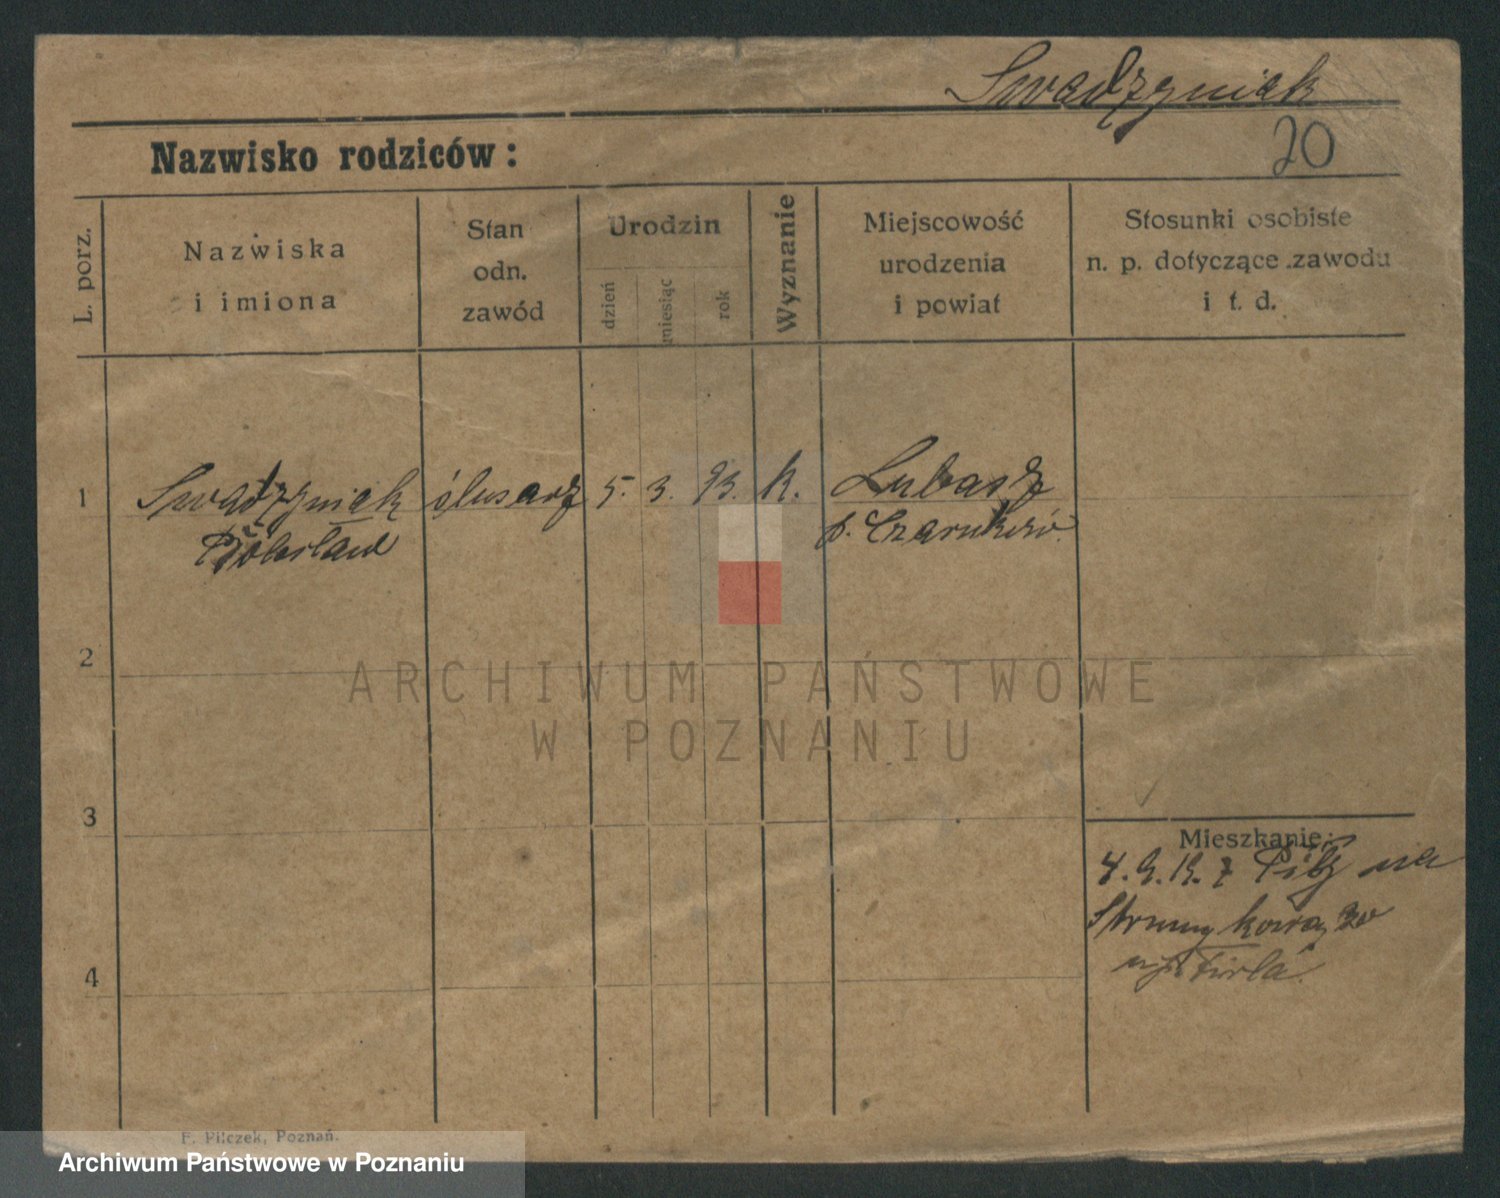 Swadzyniak
20
Nazwisko rodziców:
L. porz.
Nazwiska
i imiona
Stan
odn.
zawód
Urodzin
dzień
miesiąc
rok
Wyznanie
Miejscowość
urodzenia
i powiat
Stosunki osobiste
n. p. dotyczące zawodu
i t. d.
1
Swadzyniak
ślusarz
5.
3.
93.
k.
Lubasz
p. Czarnków.
2
3
4
Mieszkanie:
na
Strumykową 20
F. Pilczek, Poznań.
ARCHIWUM PAŃSTWOWE
W POZNANIU
Archiwum Państwowe w Poznaniu